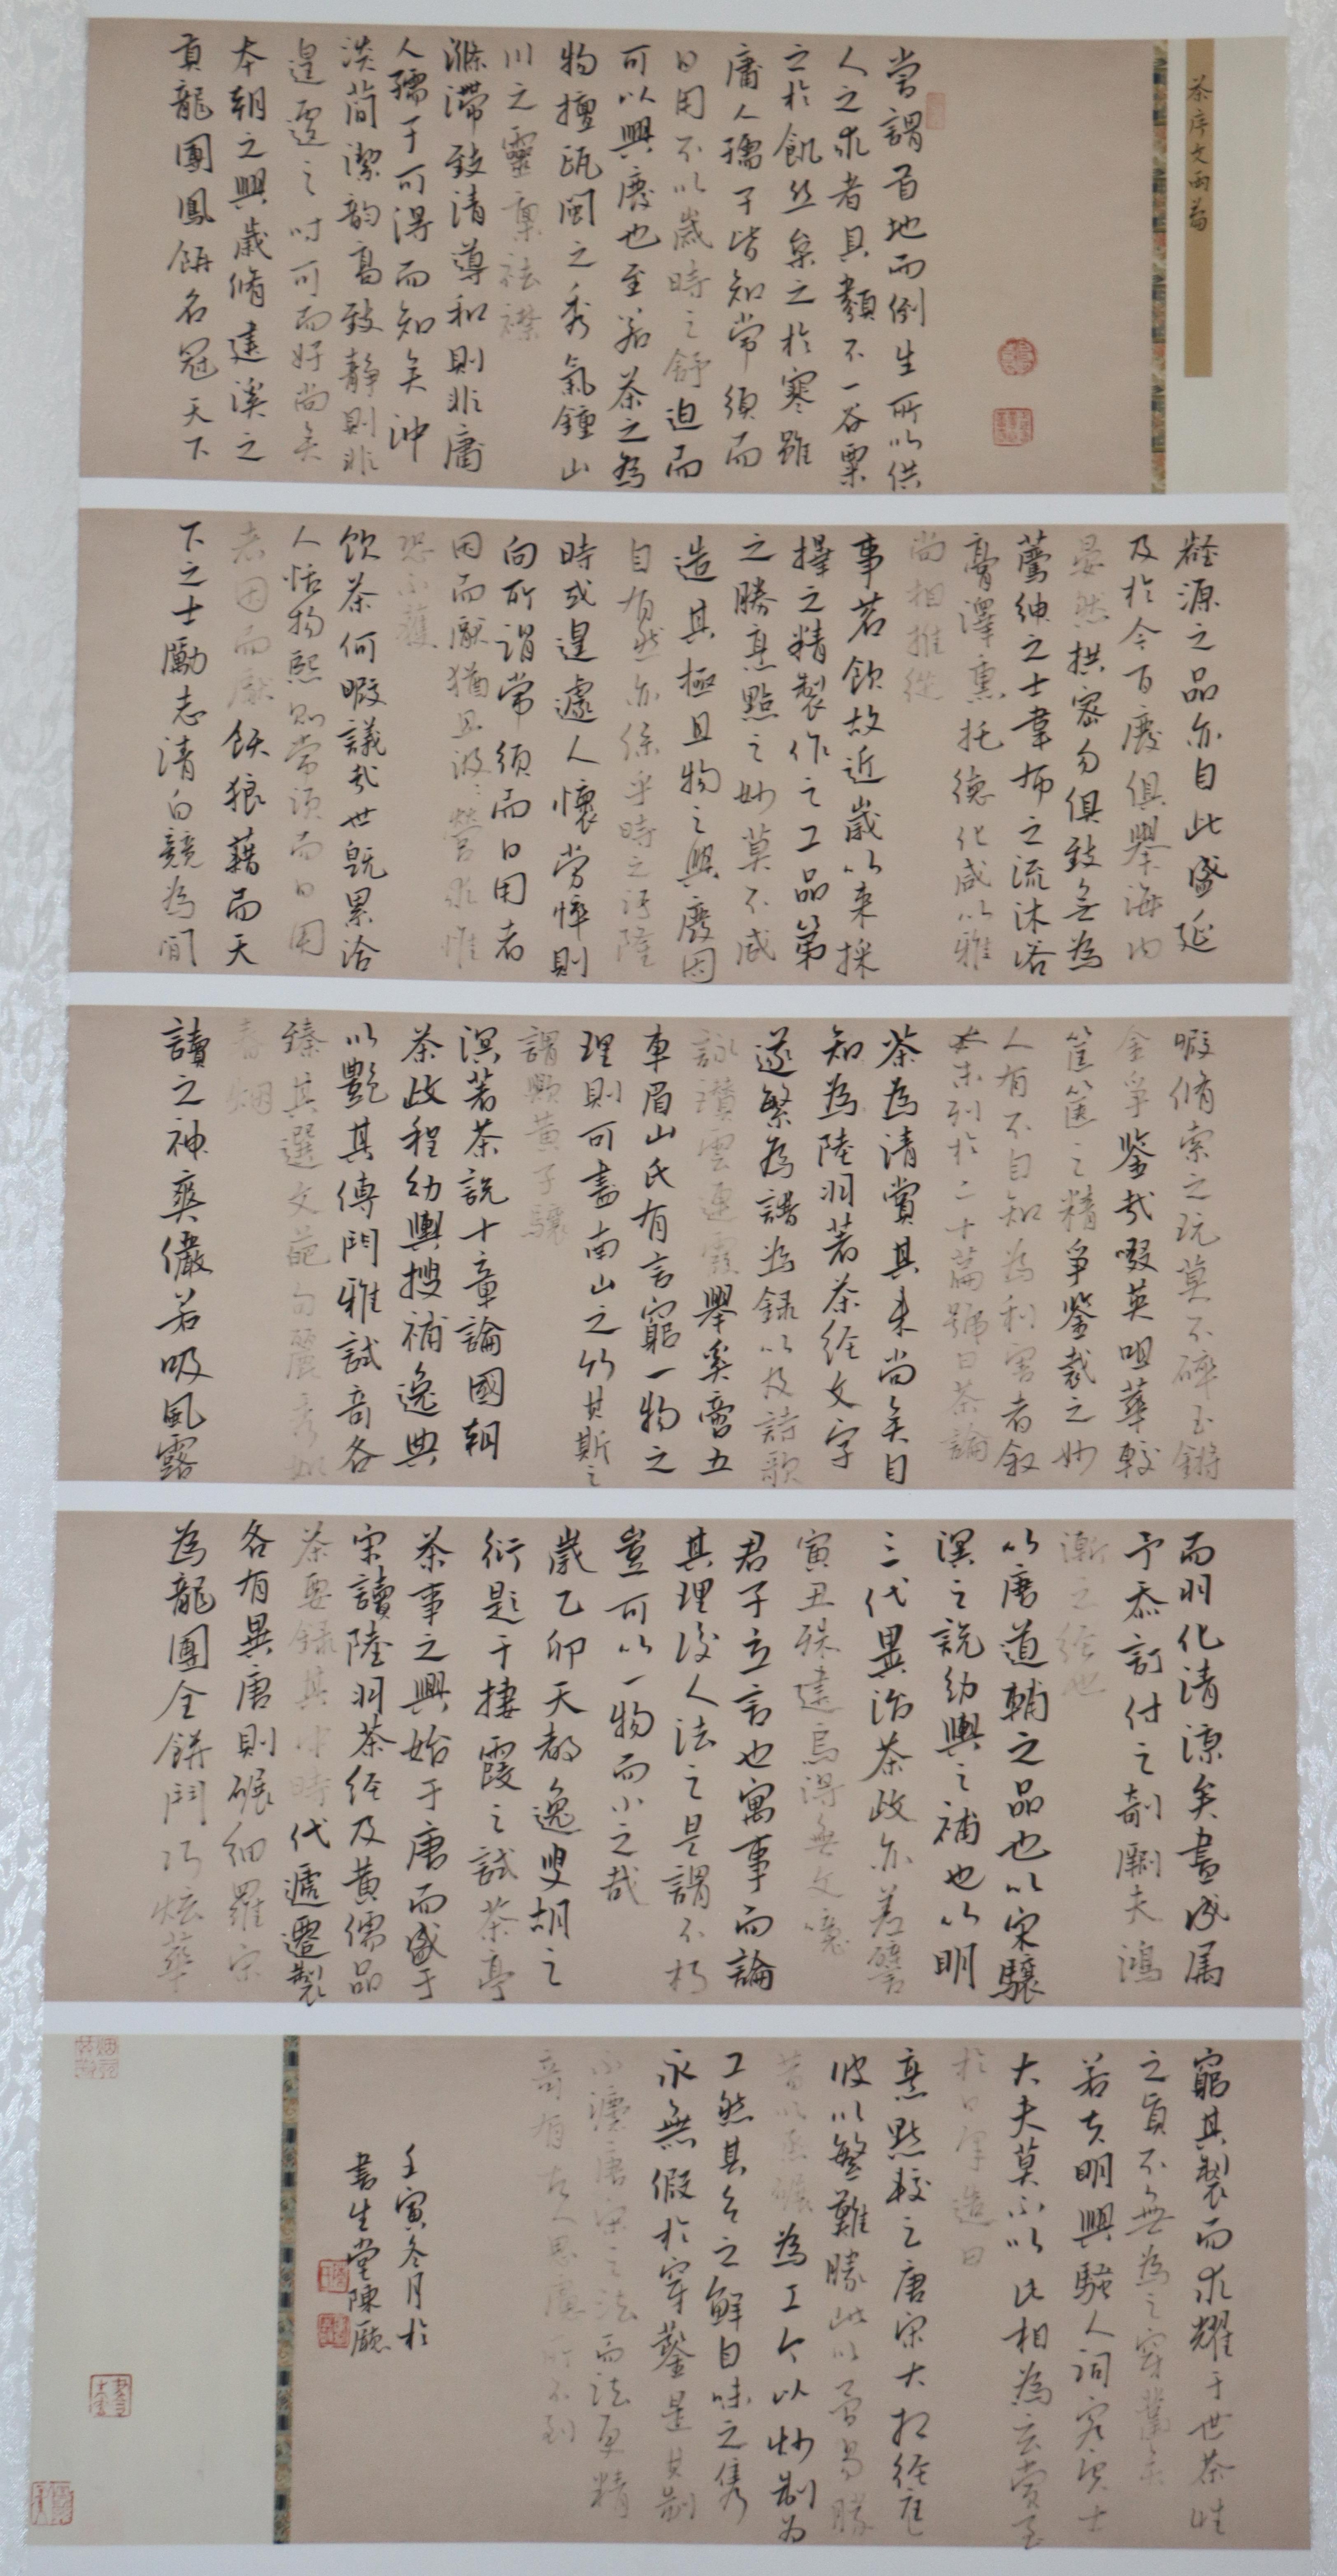 茶序文兩篇
嘗謂首地而倒生所以供
人之求者其類不一谷粟
之於飢丝枲之於寒雖
庸人孺子皆知常須而
日用不以歲時之舒迫而
可以興廢也至若茶之為
物擅瓯閩之秀氣鍾山
川之靈稟祛襟
滌滯致清導和則非庸
人孺子可得而知矣沖
淡蕳潔韵高致靜則非
遑遽之时可而好尚矣
本朝之興歲脩建溪之
貢龍團鳳餅名冠天下
壑源之品亦自此盛延
及於今百廢俱舉海内
晏然拱密勿俱致無為
薦紳之士韋布之流沐浴
膏澤熏托德化咸以雅
尚相推從
事茗飲故近歲以来採
擇之精製作之工品第
之勝烹點之妙莫不咸
造其極且物之興廢固
自有然亦係乎時之汙隆
時或遑遽人懷劳悴則
向所謂常須而日用者
因而厭猶且汲汲營求惟
恐不獲
飲茶何暇議哉世既累洽
人恬物熙則常須而日用
者因而厭飫狼藉而天
下之士勵志清白競為閒
暇脩索之玩莫不碎玉鏘
金爭鉴哉啜英咀華較
筐箧之精爭鉴裁之妙
人有不自知為利害者叙
本末列於二十篇號曰茶論
茶為清賞其来尚矣自
知為陸羽著茶经文字
遂繁為譜為録以及詩歌
詠瓚雲連霞舉奚啻五
車眉山氏有言窮一物之
理則可盡南山之竹其斯之
謂歟黄子驤
溟著茶説十章論國朝
茶政程幼輿搜補逸典
以艷其傳鬥雅試奇各
臻其選文葩句麗秀如
春烟
讀之神爽儼若吸風露
而羽化清涼矣書成属
予忝訂付之剞劂夫鴻
漸之经也
以唐道輔之品也以宋驤
溟之説幼輿之補也以明
三代異治茶政亦差譬
寅丑殊建烏得無文噫
君子立言也寓事而論
其理後人法之是謂不朽
豈可以一物而小之哉
歲乙卯天都逸叟胡之
衍題于棲霞之試茶亭
茶事之興始于唐而盛于
宋讀陸羽茶经及黄儒品
茶要録其中時代遞遷製
各有異唐則碾細羅宋
為龍團金餅鬥巧炫華
窮其製而求耀于世茶性
之真不無為之穿鑿矣
若夫明興騷人詞客贤士
大夫莫不以此相為玄賞至
於曰采造曰
烹點較之唐宋大相徑庭
彼以繁難勝此以簡易勝
昔以蒸碾為工今以炒制为
工然其色之鮮自味之隽
永無假於穿鑿是其制
不灋唐宋之法而法更精
奇有古人思慮所不到
壬寅冬月於
書生堂陳廳